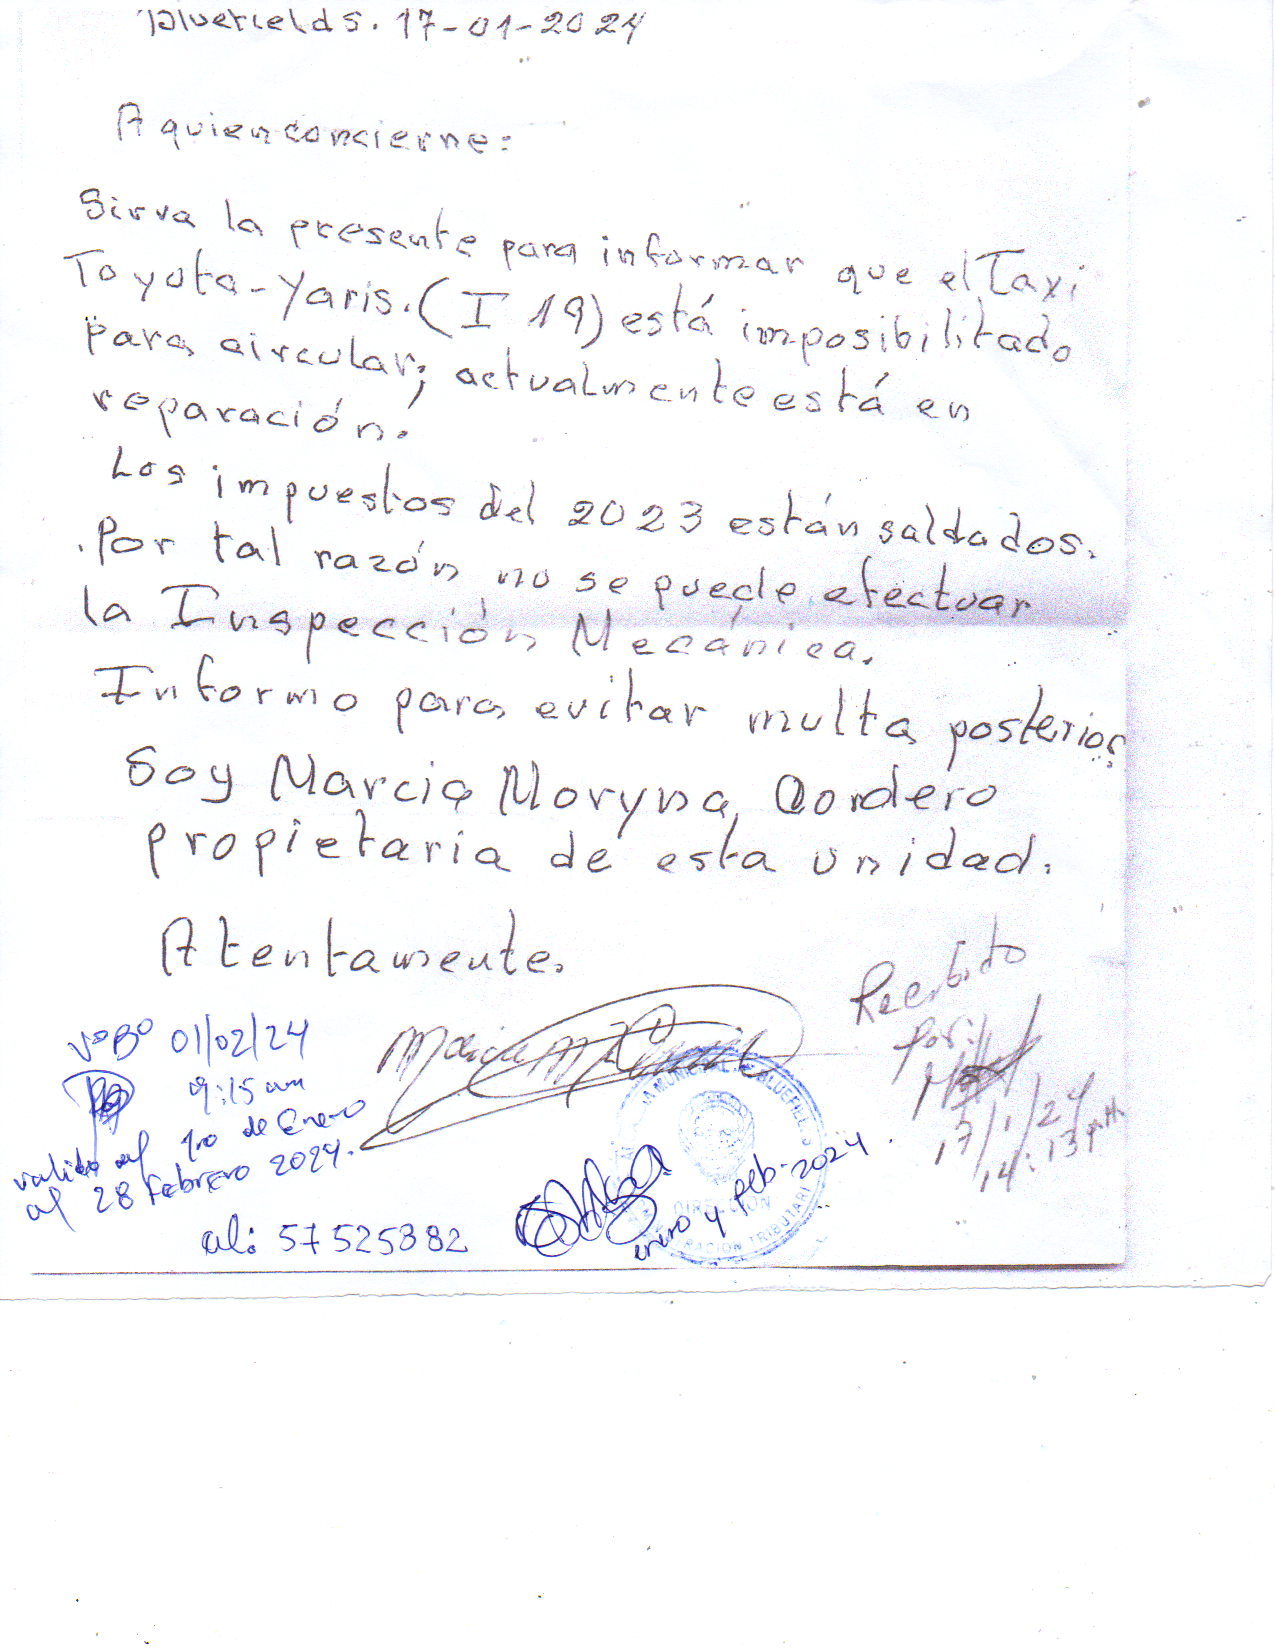 Bluefields. 17-01-2024
A quien concierne:
Sirva la presente para informar que el Taxi
Toyota-Yaris. (I 19) está imposibilitado
para circular; actualmente está en
reparación.
Los impuestos del 2023 están saldados.
Por tal razón no se puede efectuar
la Inspección Mecánica.
Informo para evitar multa posterior
Soy Marcia Moryna Cordero
propietaria de esta unidad.
Atentamente.
Recibido
por:
17/1/24
14:13 pm
VoBo 01/02/24
9:15 am
valido al 1ro de Enero
al 28 Febrero 2024.
al: 57525382
enero y feb-2024.
MUNICIPAL BLUEFIELDS
DIRECCIÓN